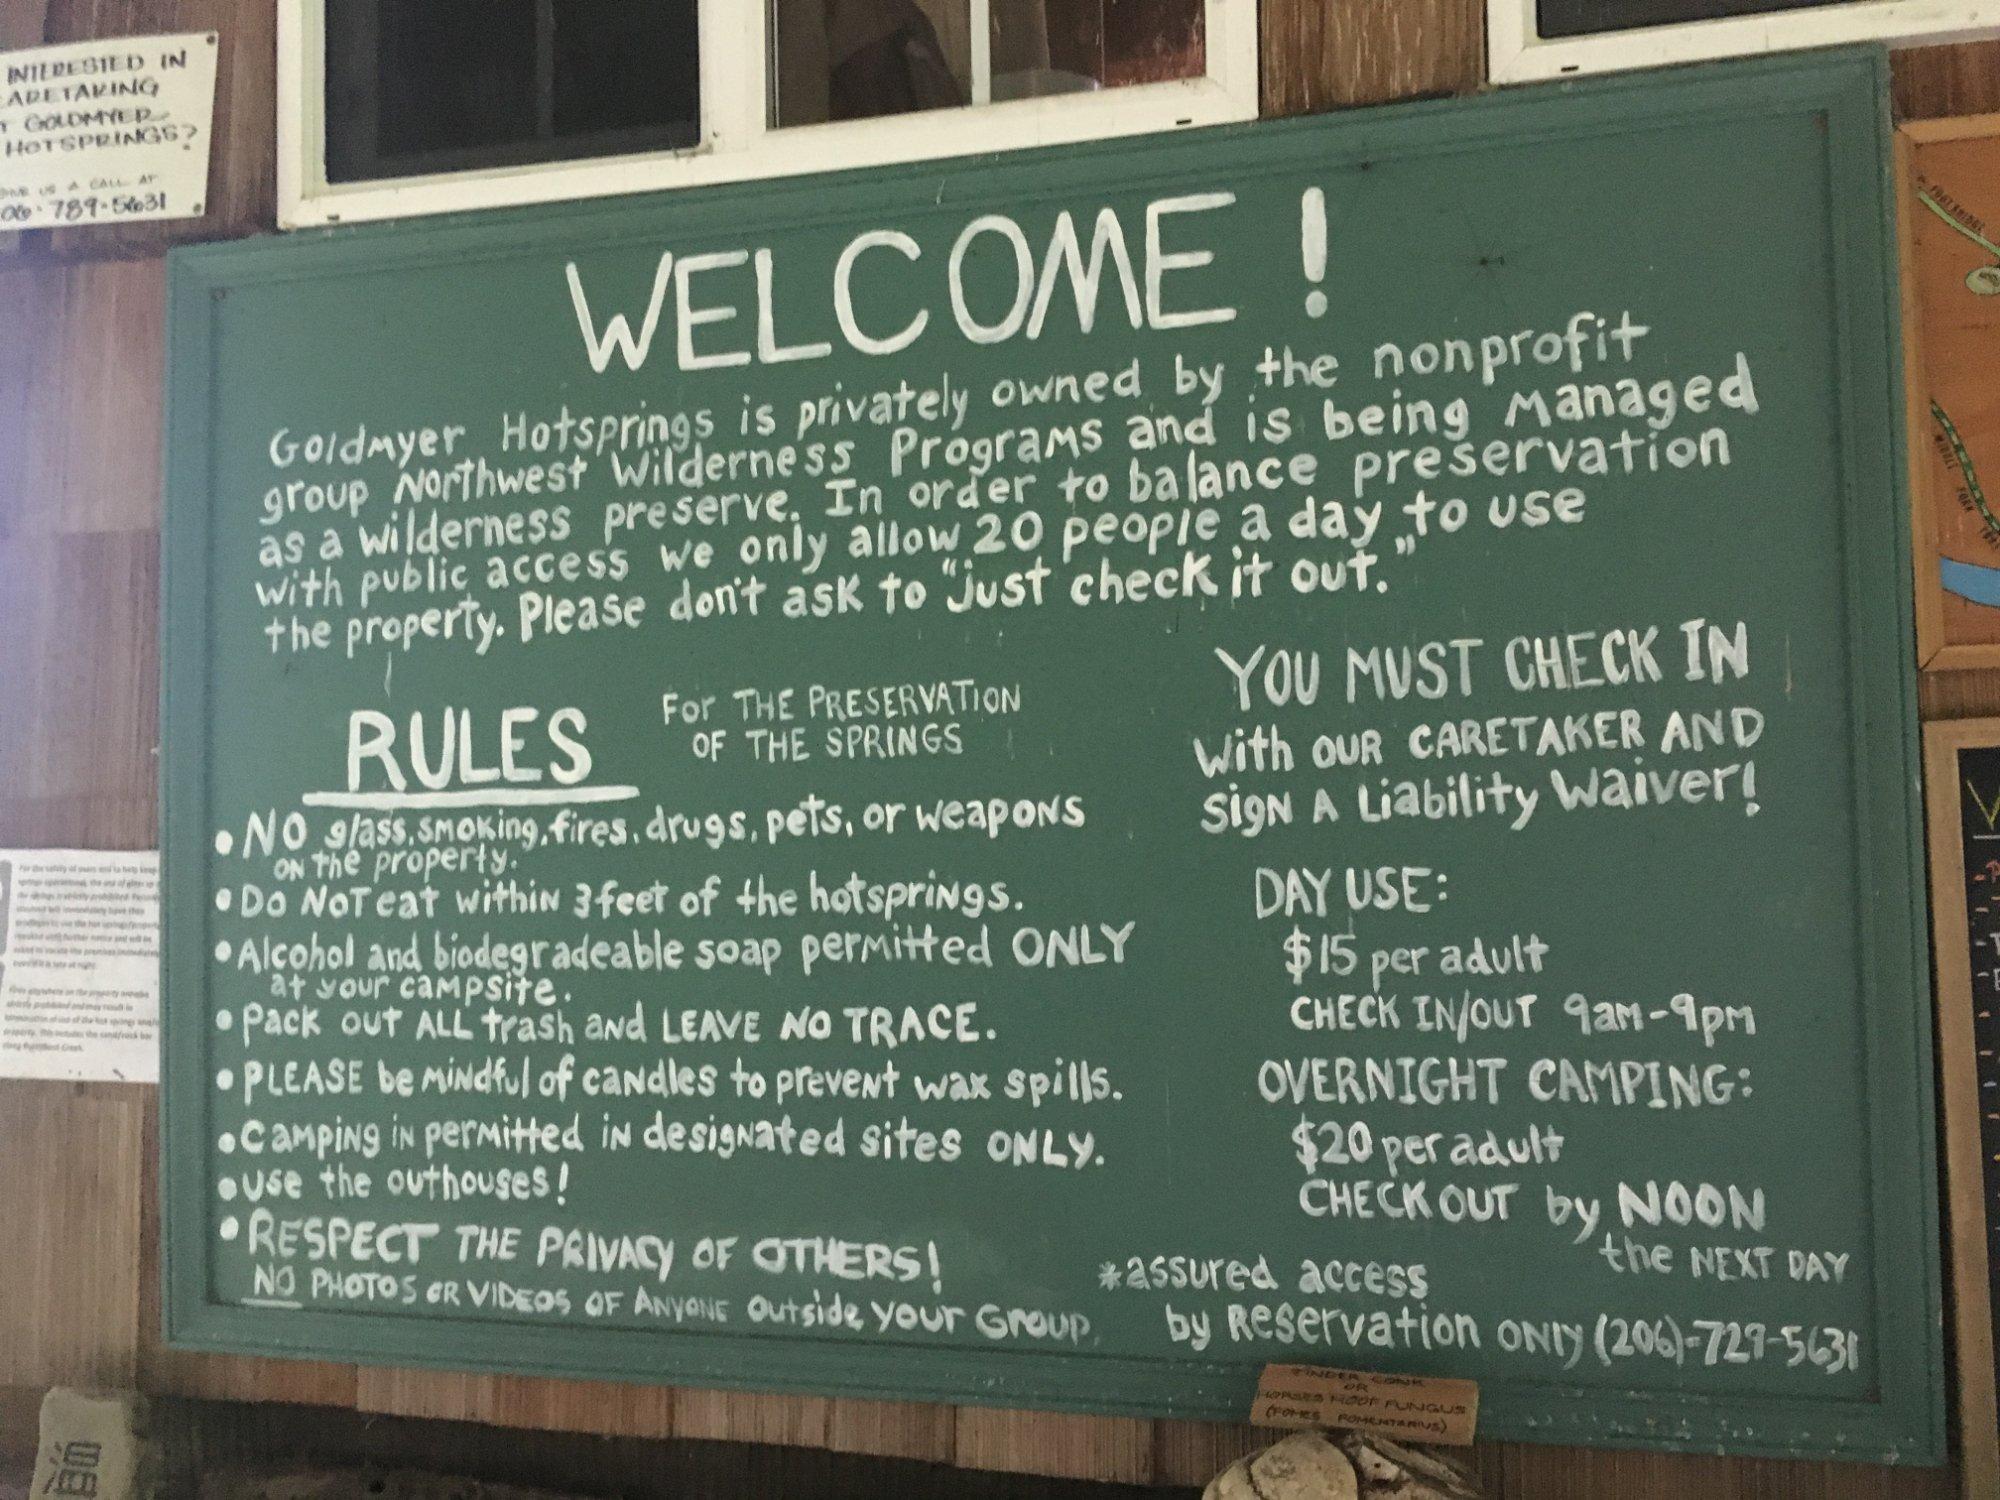 INTERESTED IN
ARETAKING
T GOLDMYER
HOTSPRINGS?
GIVE US A CALL AT
06-789-5631
WELCOME!
Goldmyer Hotsprings is privately owned by the nonprofit
group Northwest Wilderness Programs and is being managed
as a wilderness preserve. In order to balance preservation
with public access we only allow 20 people a day to use
the property. Please don't ask to "just check it out."
RULES
For THE PRESERVATION
OF THE SPRINGS
• NO glass, smoking, fires, drugs, pets, or weapons
on the property.
• Do NOT eat within 3 feet of the hotsprings.
• Alcohol and biodegradeable soap permitted ONLY
at your campsite.
• Pack out ALL trash and LEAVE NO TRACE.
• PLEASE be mindful of candles to prevent wax spills.
• Camping in permitted in designated sites ONLY.
• use the outhouses!
• RESPECT THE PRIVACY OF OTHERS!
NO PHOTOS OR VIDEOS OF ANYONE outside your Group.
YOU MUST CHECK IN
with OUR CARETAKER AND
sign A Liability Waiver!
DAY USE:
$15 per adult
CHECK IN/OUT 9am-9pm
OVERNIGHT CAMPING:
$20 per adult
CHECK OUT by NOON
the NEXT DAY
*assured access
by Reservation ONly (206)-729-5631
TINDER CONK
OR
HORSES HOOF FUNGUS
(FOMES FOMENTARIUS)